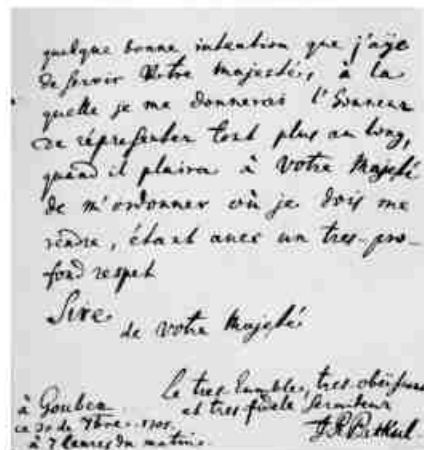 quelque bonne intention que j'aÿe
de servir Votre Majesté, à la
quelle je me donnerai l'honneur
de répresenter tout plus au long,
quand il plaira à Votre Majesté
de m'ordonner où je dois me
rendre, étant avec un tres-pro-
fond respet
Sire
de votre Majesté
le tres humble, tres obeïssant
et tres fidele serviteur
à Gouben
ce 30 de 7bre 1705
à 7 heures du matin.